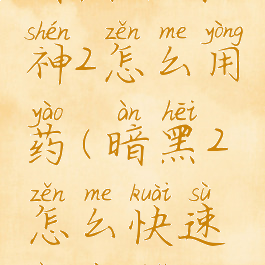 shén zěn me yòng
神2怎么用
yào àn hēi
药(暗黑2
zěn me kuài sù
怎么快速